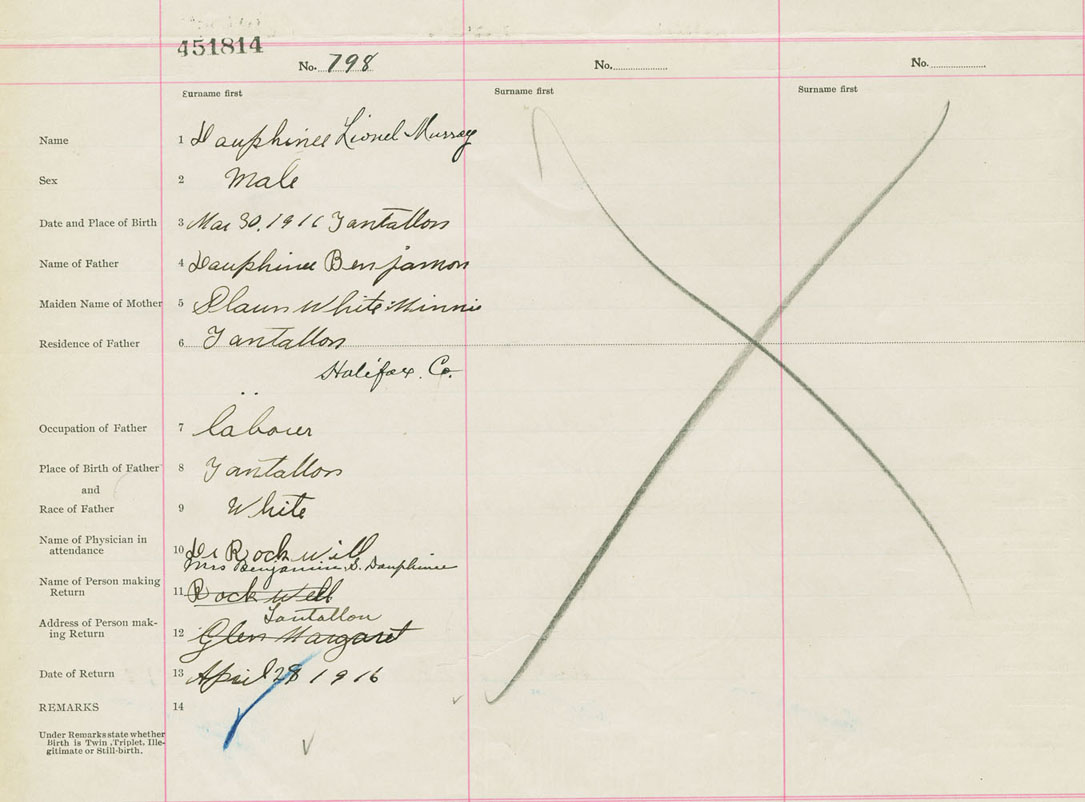 451814
No. 798
No.
No.
Surname first
Surname first
Surname first
Name 1 Dauphinee Lionel Murray
Sex 2 Male
Date and Place of Birth 3 Mar 30, 1916 Tantallon
Name of Father 4 Dauphinee Benjamon
Maiden Name of Mother 5 White Minnie
Residence of Father 6 Tantallon
Halifax. Co.
Occupation of Father 7 labouer
Place of Birth of Father 8 Tantallon
and
Race of Father 9 White
Name of Physician in
attendance 10 Dr Rockwill
Mrs Benjamin S. Dauphinee
Name of Person making
Return 11 Rockwell
Tantallon
Address of Person mak-
ing Return 12 Glen Margaret
Date of Return 13 April 28 1916
REMARKS 14
Under Remarks state whether
Birth is Twin, Triplet, Ille-
gitimate or Still-birth.